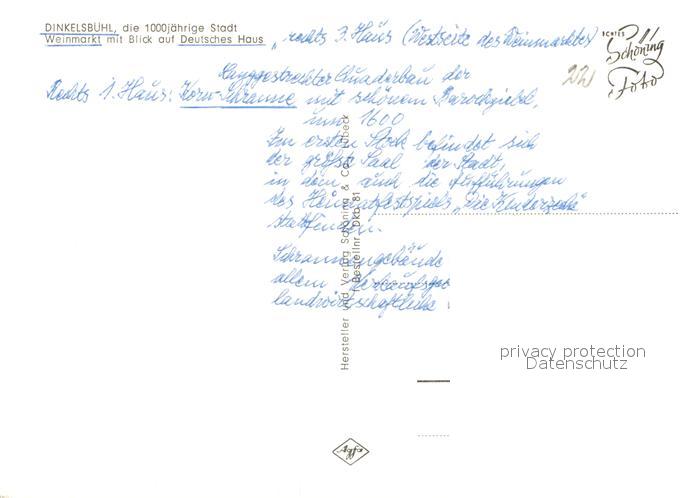 DINKELSBÜHL, die 1000jährige Stadt
Weinmarkt mit Blick auf Deutsches Haus „ rechts 3. Haus (Westseite des Weinmarktes)
ECHTES
Schöning
Foto
Langgestreckter Quaderbau der
Rechts 1. Haus: Korn-Schranne mit schönem Barockgiebel,
um 1600
Im ersten Stock befindet sich
der größte Saal der Stadt,
in dem auch die Aufführungen
des Heimatfestspiels „Die Kinderzeche"
stattfinden.
Schrannengebäude
allem Verkaufs
landwirtschaftliche
Hersteller und Verlag Schöning & Co., Lübeck
Bestellnr. Dkb 81
privacy protection
Datenschutz
Agfa